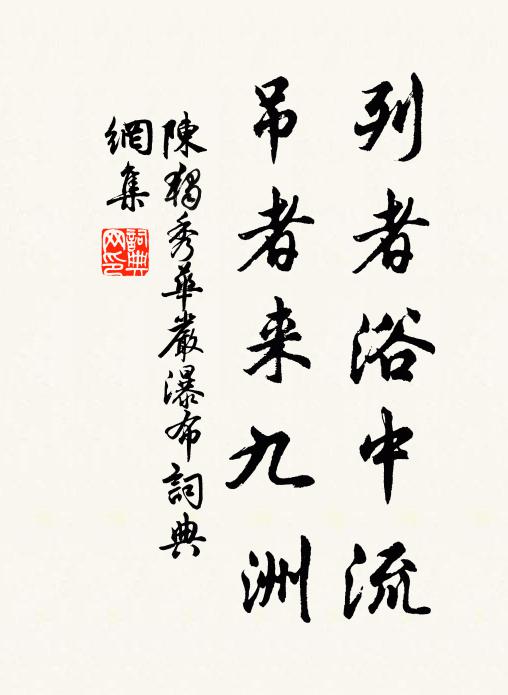 列者浴中流
吊者来九洲
陳獨秀華嚴瀑布詞典
網集
詞典
网印